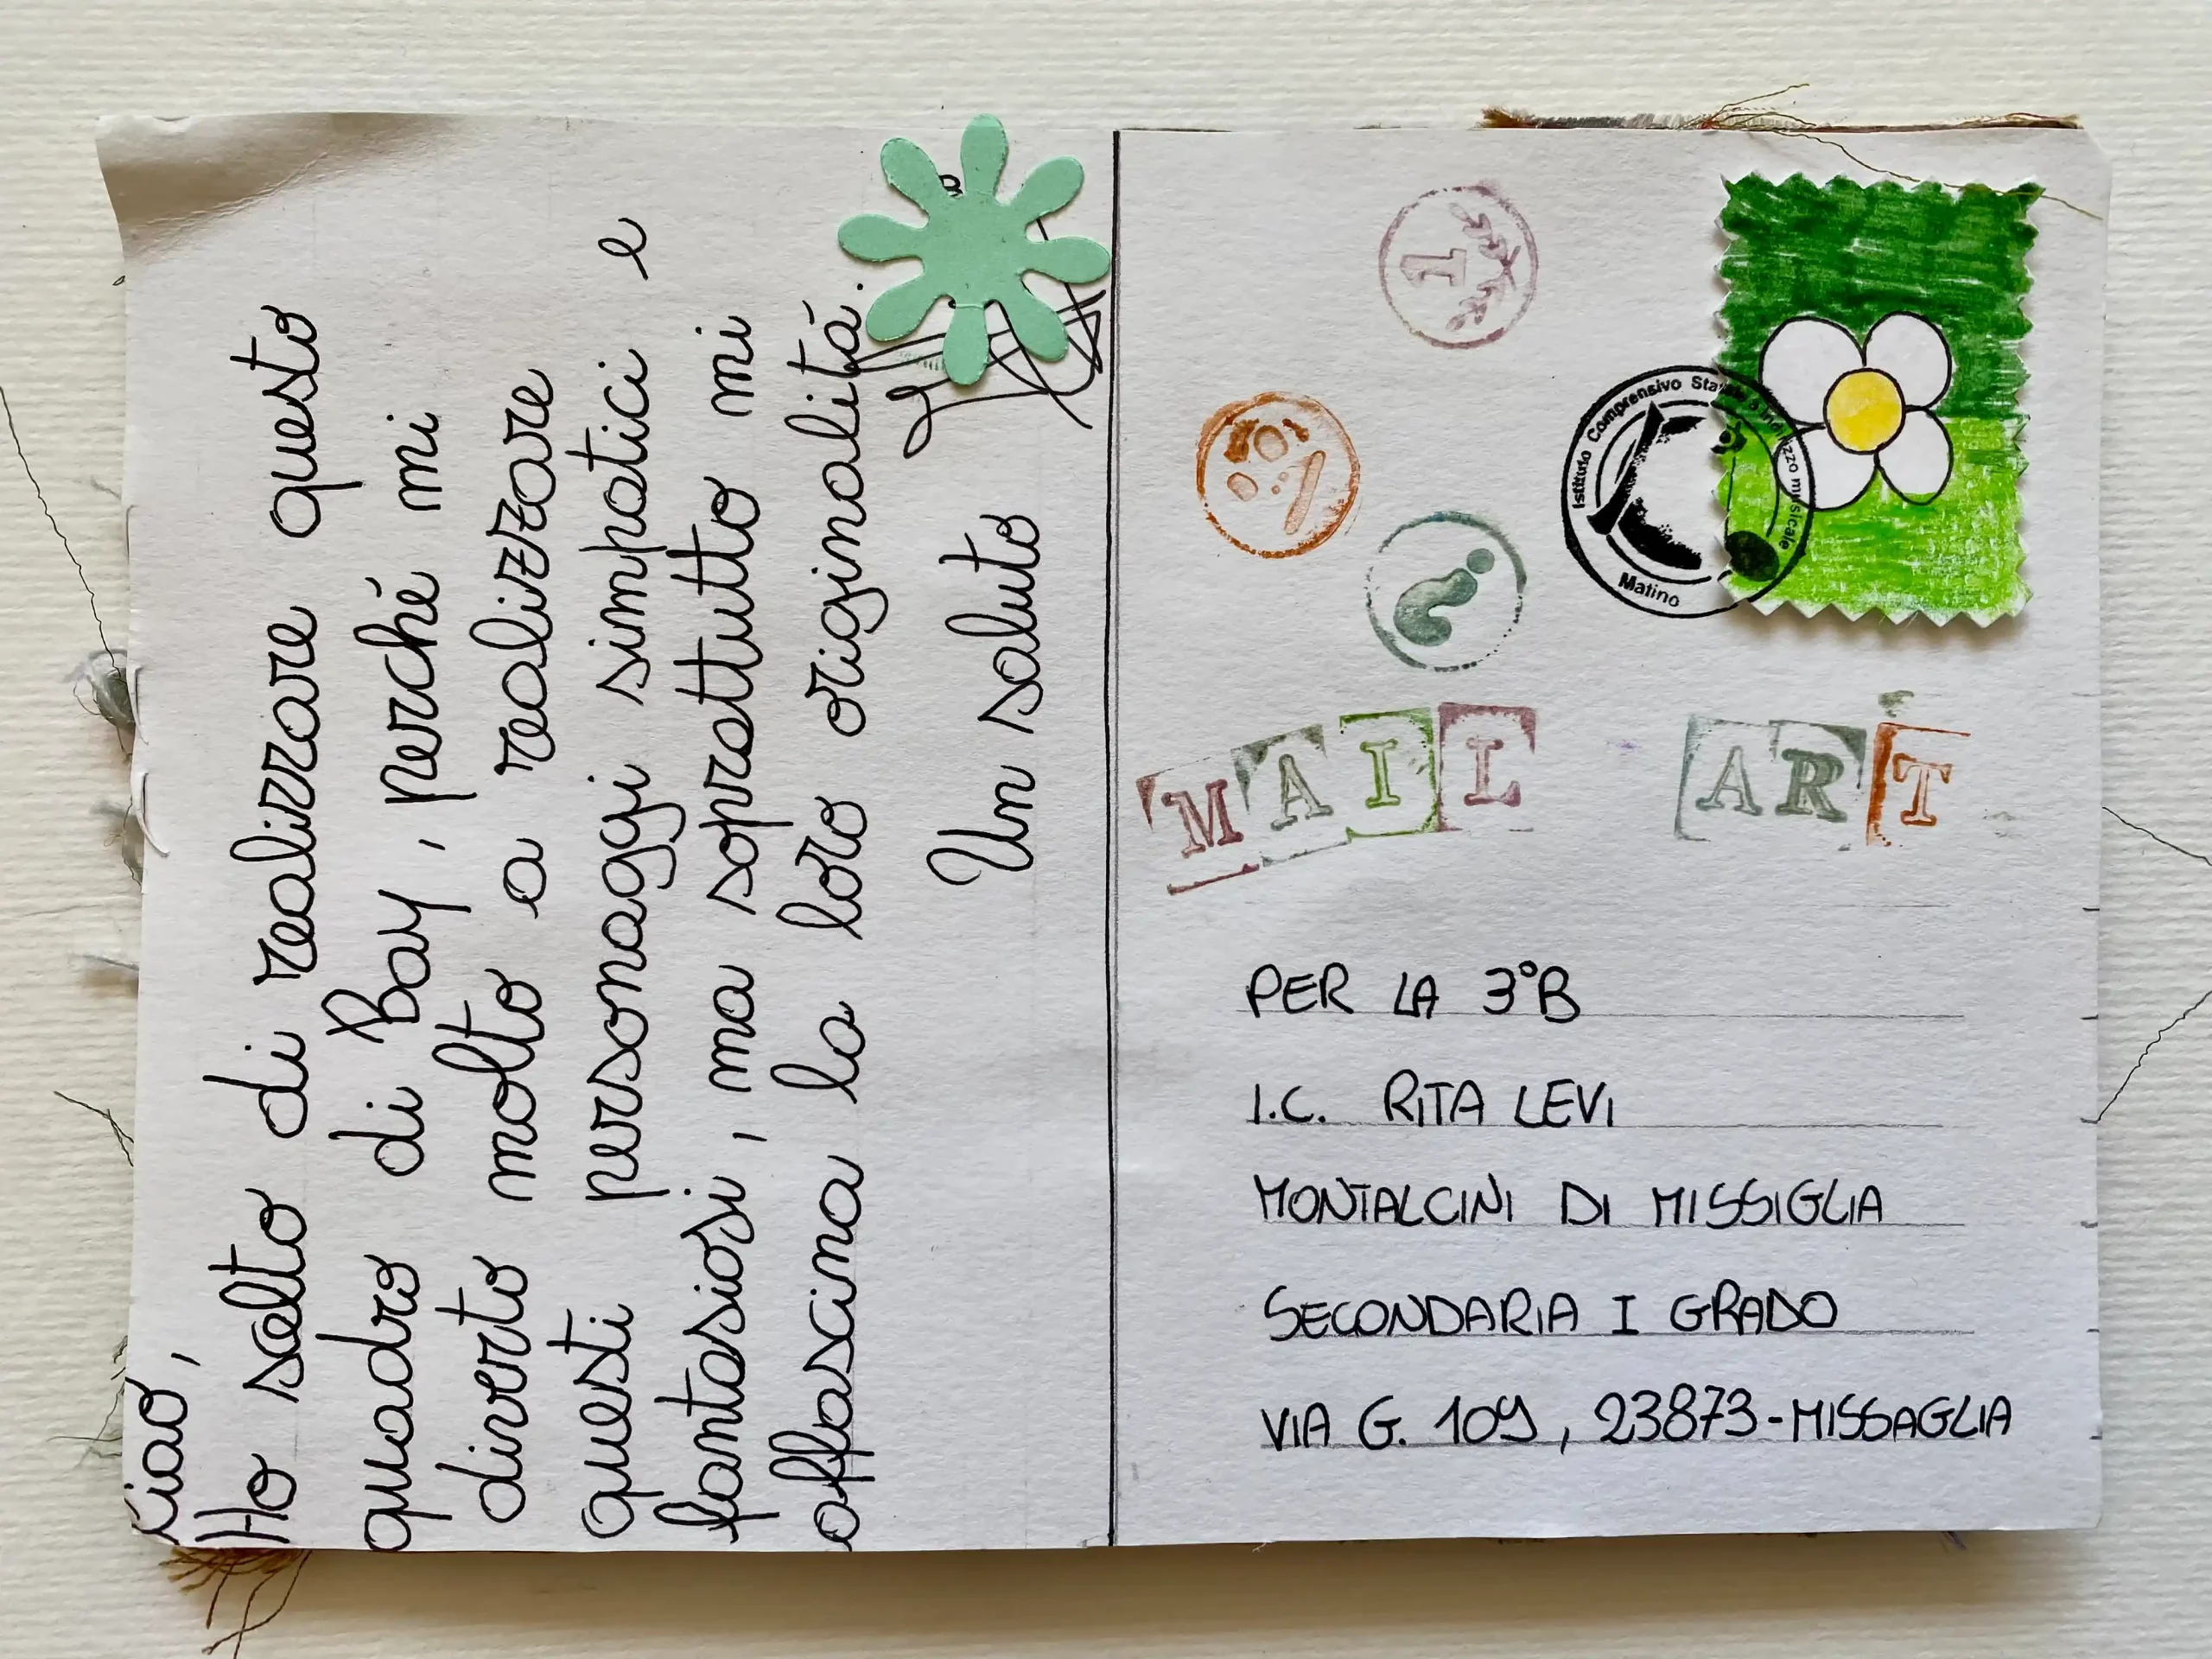 Ciao,
Ho scelto di realizzare questo
quadro di Bay, perché mi
diverto molto a realizzare
questi personaggi simpatici e
fantasiosi, ma soprattutto mi
affascina la loro originalitá.
Un saluto
1
Istituto Comprensivo Matino
musicale
MAIL ART
PER LA 3°B
I.C. RITA LEVI
MONTALCINI DI MISSIGLIA
SECONDARIA I GRADO
VIA G. 109, 23873-MISSAGLIA